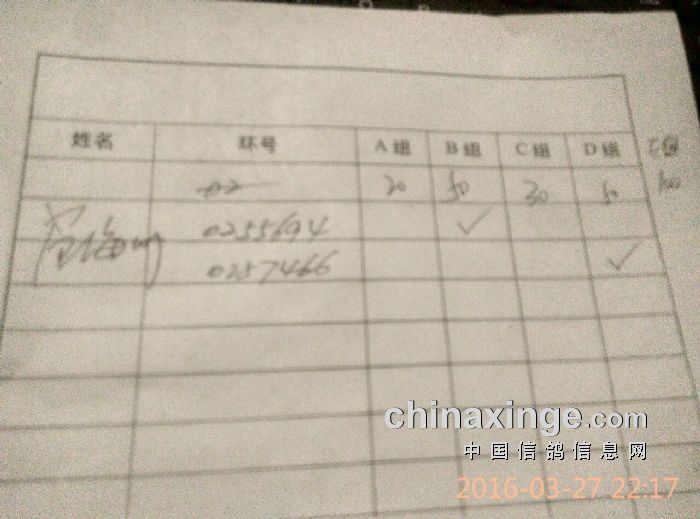 姓名 环号 A组 B组 C组 D组
02 20 50 30 50 100
0255694 ✓
0257466 ✓
chinaxinge.com
中国信鸽信息网
2016-03-27 22:17